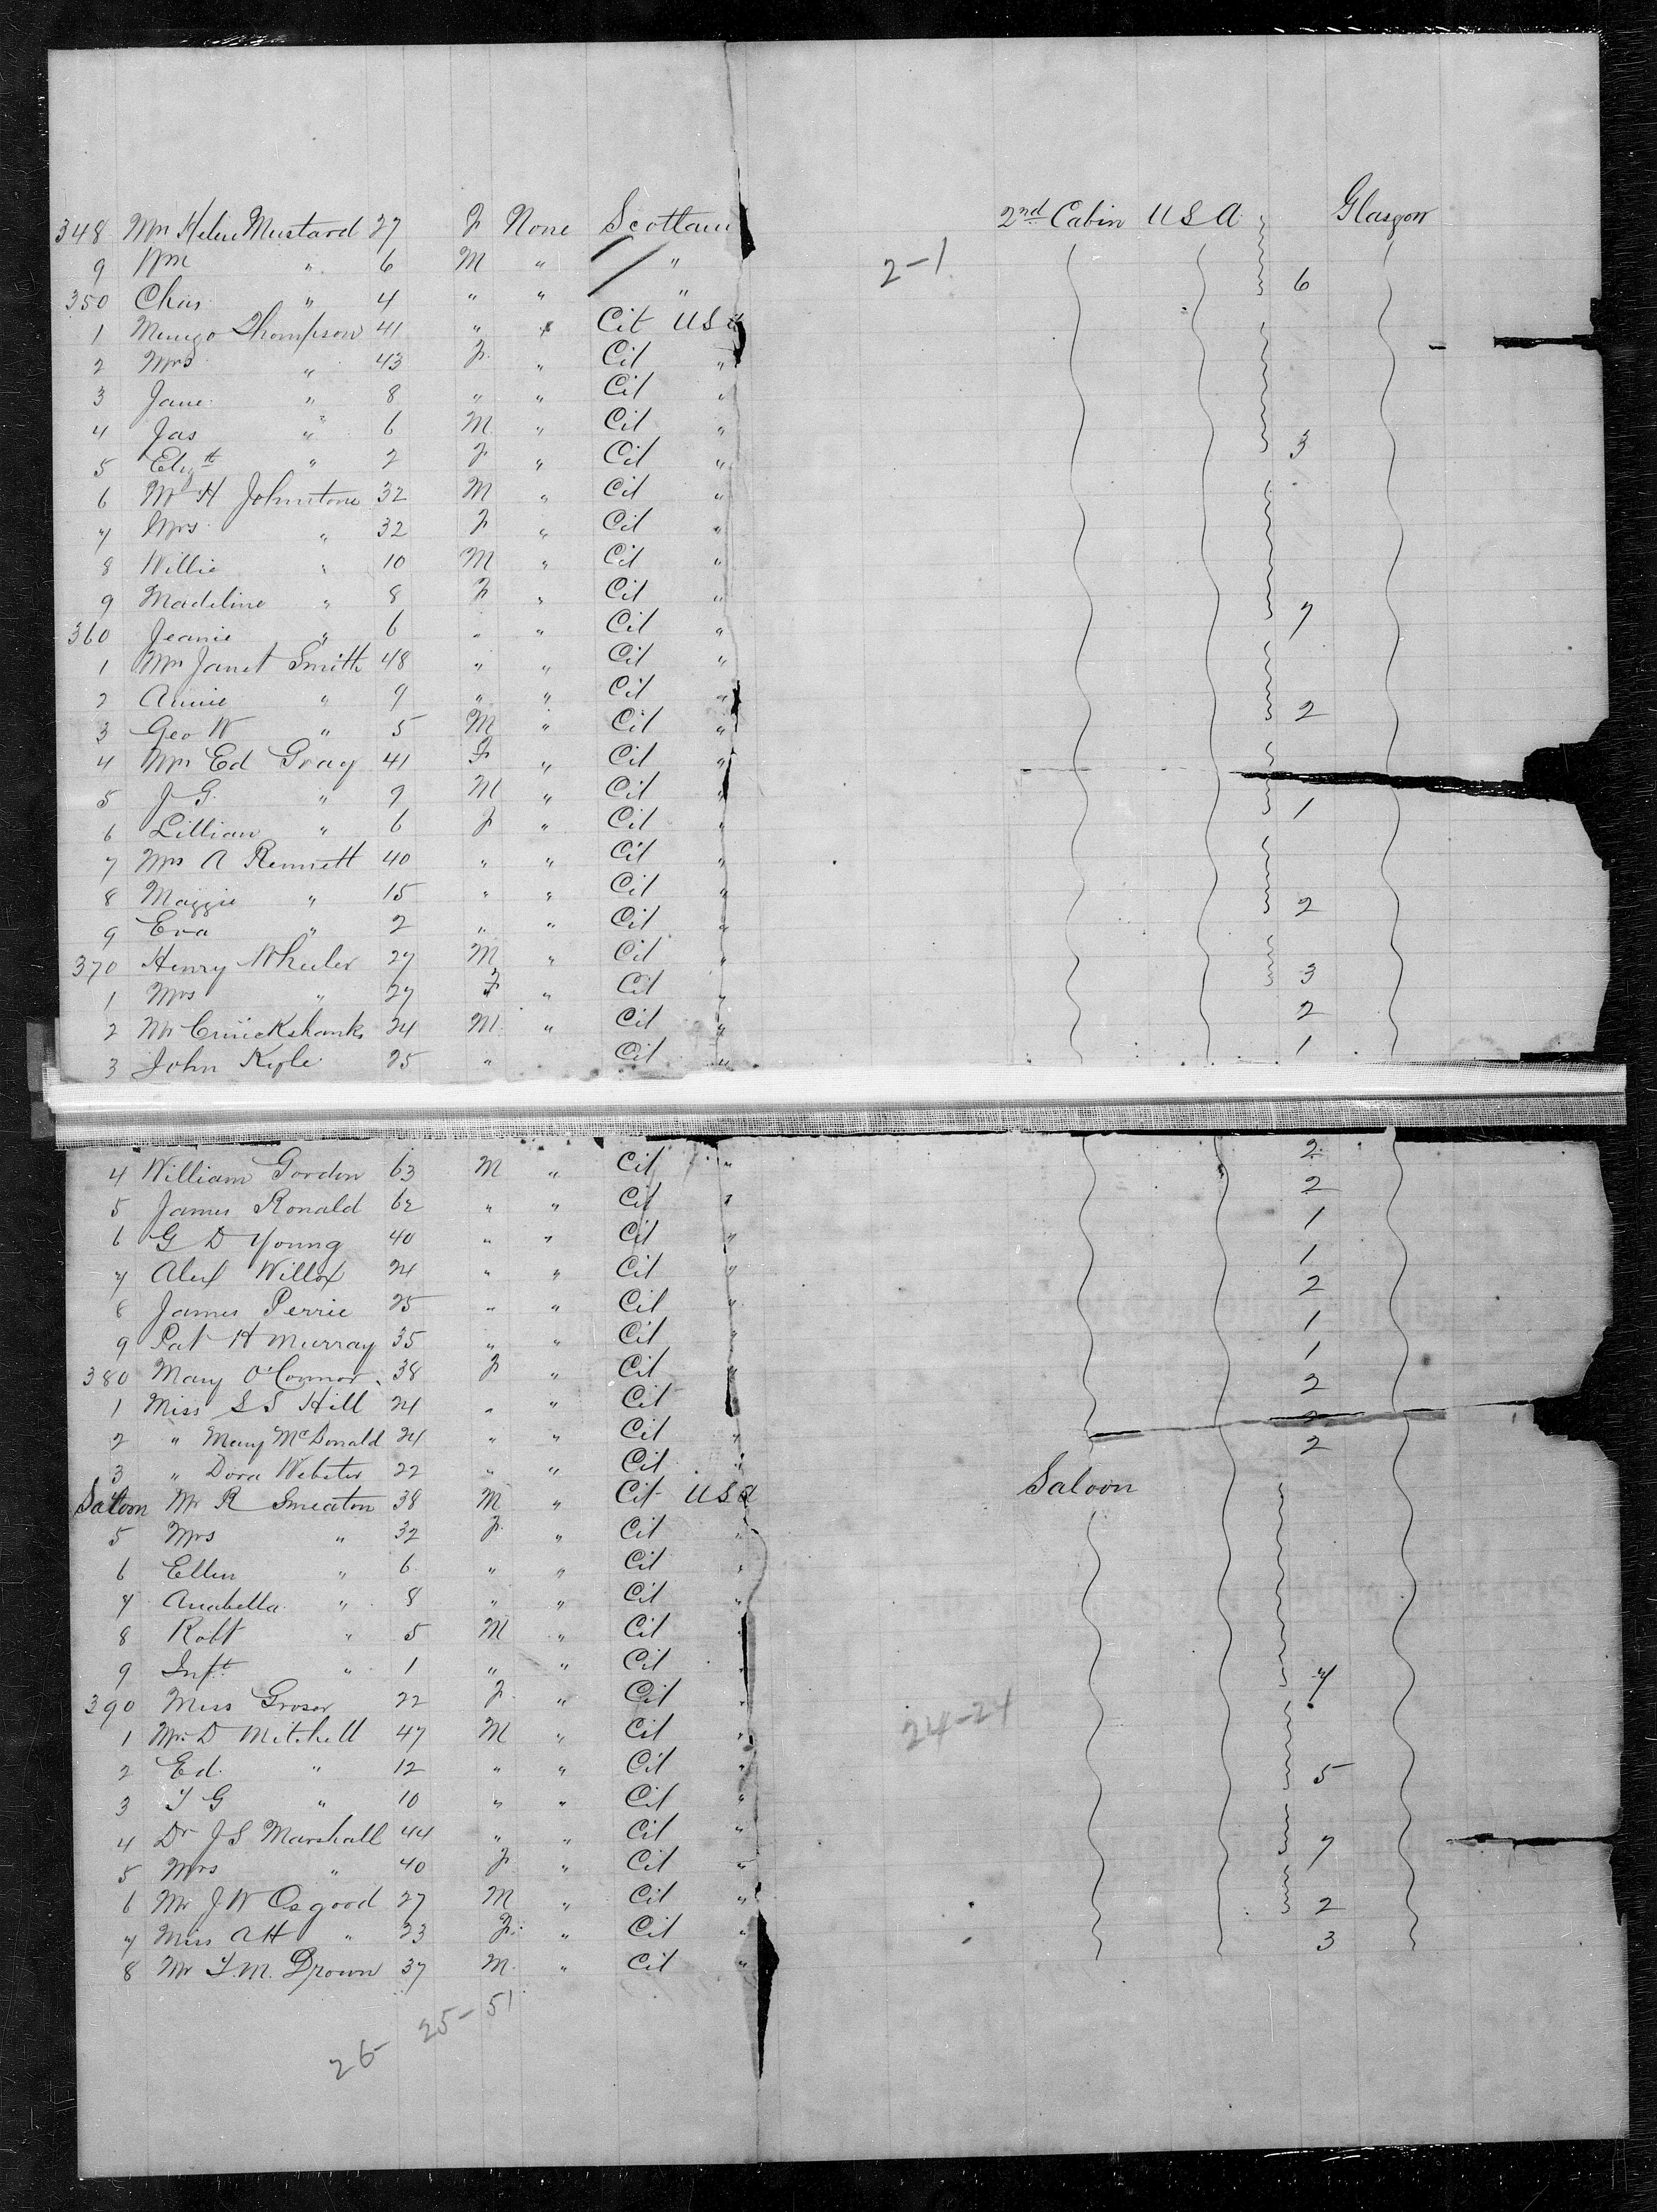 348 Mrs Helen Mustard 27 F None Scotland 2nd Cabin USA Glasgow
9 Wm " 6 M " " 2-1
350 Chas " 4 " " " 6
1 Mungo Thompson 41 " " Cit USA
2 Mrs " 43 F " Cit "
3 Jane " 8 " " Cit "
4 Jas " 6 M " Cit "
5 Elizth " 2 F " Cit " 3
6 Mr H Johnstone 32 M " Cit "
7 Mrs " 32 F " Cit "
8 Willie " 10 M " Cit "
9 Madeline " 8 F " Cit "
360 Jeanie " 6 " " Cit " 7
1 Mrs Janet Smith 48 " " Cit "
2 Annie " 9 " " Cit "
3 Geo W " 5 M " Cit " 2
4 Mrs Ed Gray 41 F " Cit "
5 J G " 9 M " Cit "
6 Lillian " 6 F " Cit " 1
7 Mrs A Rennett 40 " " Cit "
8 Maggie " 15 " " Cit "
9 Eva " 2 " " Cit " 2
370 Henry Wheeler 27 M " Cit "
1 Mrs " 27 F " Cit " 3
2 Mr Cruickshanks 24 M " Cit " 2
3 John Kyle 25 " Cit " 1
4 William Gordon 63 M " Cit " 2
5 James Ronald 62 " " Cit " 2
6 G D Young 40 " " Cit " 1
7 Alex Willox 24 " " Cit " 1
8 James Perrie 25 " " Cit " 2
9 Pat H Murray 35 " " Cit " 1
380 Mary O'Connor 38 F " Cit " 1
1 Miss S S Hill 24 " " Cit " 2
2 " Mary McDonald 24 " " Cit " 2
3 " Dora Webster 22 " " Cit " 2
Saloon Mr R Smeaton 38 M " Cit USA Saloon
5 Mrs " 32 F " Cit "
6 Ellen " 6 " " Cit "
7 Anabella " 8 " " Cit "
8 Robt " 5 M " Cit "
9 Inft " 1 " " Cit "
390 Miss Grosor 22 F " Cit " 7
1 Mr D Mitchell 47 M " Cit " 24-24
2 Ed " 12 " " Cit "
3 T G " 10 " " Cit " 5
4 Dr J S Marshall 44 " " Cit "
5 Mrs " 40 F " Cit " 7
6 Mr J W Osgood 27 M " Cit "
7 Miss A H " 23 F " Cit " 2
8 Mr T. M. Drown 37 M " Cit " 3
26- 25-51